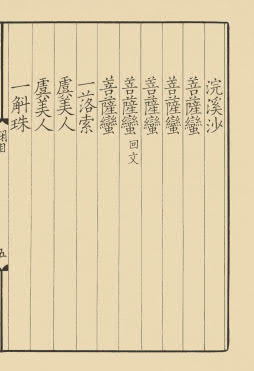 浣溪沙
菩薩蠻
菩薩蠻
菩薩蠻
菩薩蠻 回文
菩薩蠻
一落索
虞美人
虞美人
一斛珠
五